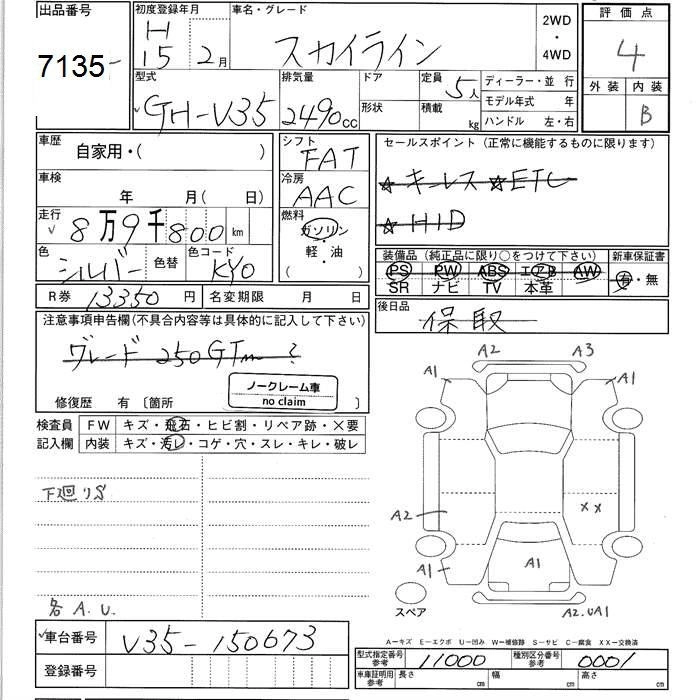 出品番号
7135
初度登録年月
H
15年 2月
車名・グレード
スカイライン
2WD
・
4WD
評価点
4
外装 内装
B
型式
GH-V35
排気量
2490cc
ドア
形状
定員
5人
積載
kg
ディーラー・並 行
モデル年式 年
ハンドル 左・右
車歴
自家用・( )
車検
年 月( 日)
走行
8万9千800km
色
シルバー
色替
色コード
KY0
シフト
FAT
冷房
AAC
燃料
ガソリン
・
軽・油
( )
セールスポイント(正常に機能するものに限ります)
☆キーレス ☆ETC
☆HID
装備品(純正品に限り○をつけて下さい)
PS PW ABS エアB AW
SR ナビ TV 本革
新車保証書
有・無
R券 13350円
名変期限 月 日
後日品
保 取
注意事項申告欄(不具合内容等は具体的に記入して下さい)
グレード 250GTm ?
ノークレーム車
no claim
修復歴 有 〔箇所 〕
検査員
記入欄
FW キズ・飛石・ヒビ割・リペア跡・×要
内装 キズ・汚レ・コゲ・穴・スレ・キレ・破レ
下廻りS
各A.U.
A2 A3
A1 A1
A2 XX
A1 A1
スペア
A2.UA1
A-キズ E-エクボ U-凹み W-補修跡 S-サビ C-腐食 XX-交換済
車台番号 V35-150673
登録番号
型式指定番号
参考
11000
種別区分番号
参考
0001
車庫証明用
参考
長さ cm 幅 cm 高さ cm